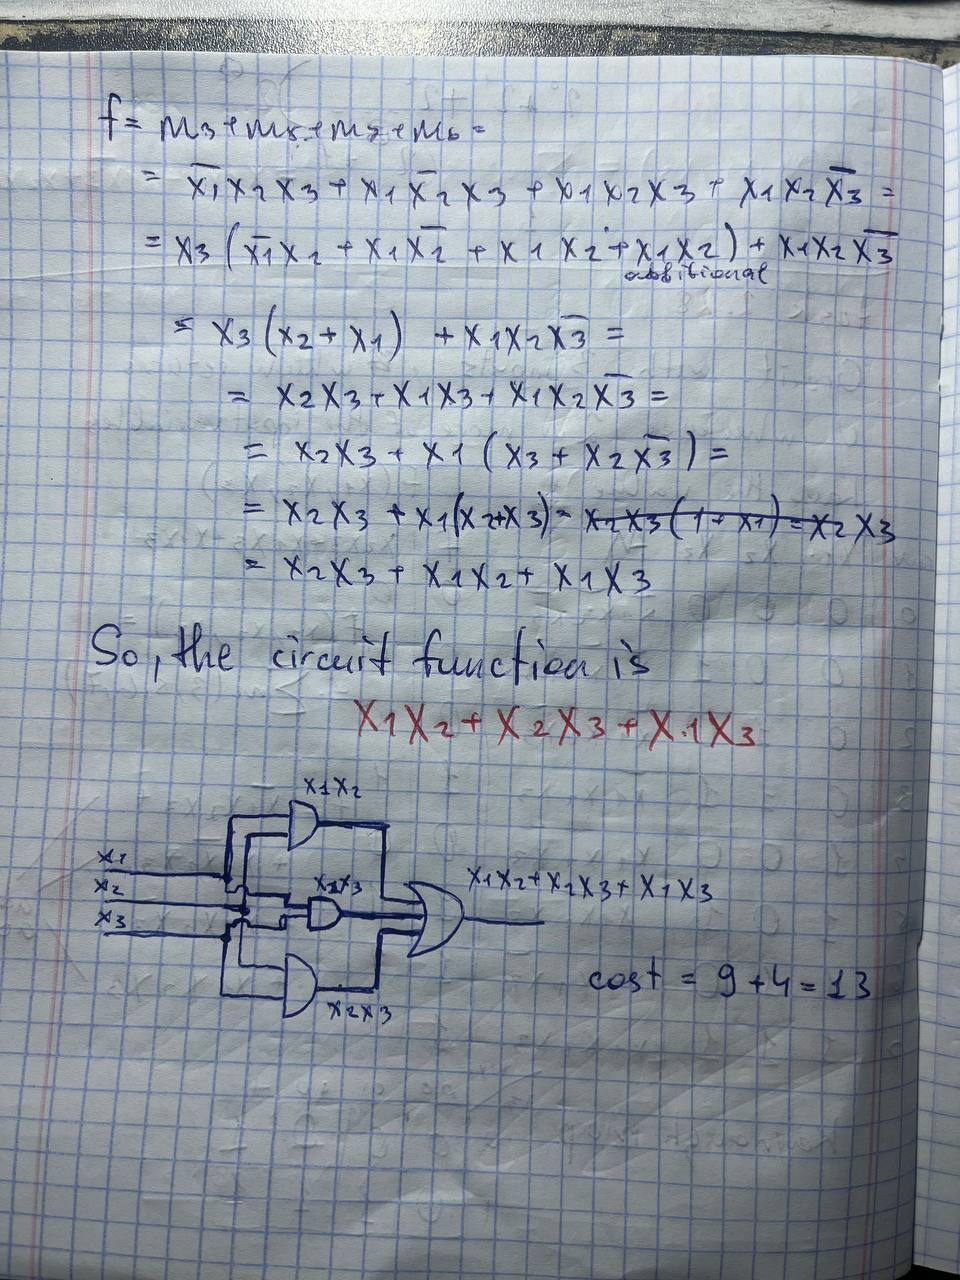 f = m3 + m5 + m7 + m6 =
= x̅1 x2 x3 + x1 x̅2 x3 + x1 x2 x3 + x1 x2 x̅3 =
= x3 ( x̅1 x2 + x1 x̅2 + x1 x2 + x1 x2 ) + x1 x2 x̅3
additional
= x3 ( x2 + x1 ) + x1 x2 x̅3 =
= x2 x3 + x1 x3 + x1 x2 x̅3 =
= x2 x3 + x1 ( x3 + x2 x̅3 ) =
= x2 x3 + x1 ( x2 + x3 ) = x2 x3 ( 1 + x1 ) = x2 x3
= x2 x3 + x1 x2 + x1 x3
So, the circuit function is
x1 x2 + x2 x3 + x1 x3
x1 x2
x1
x2
x3
x1 x3
x1 x2 + x2 x3 + x1 x3
x2 x3
cost = 9 + 4 = 13